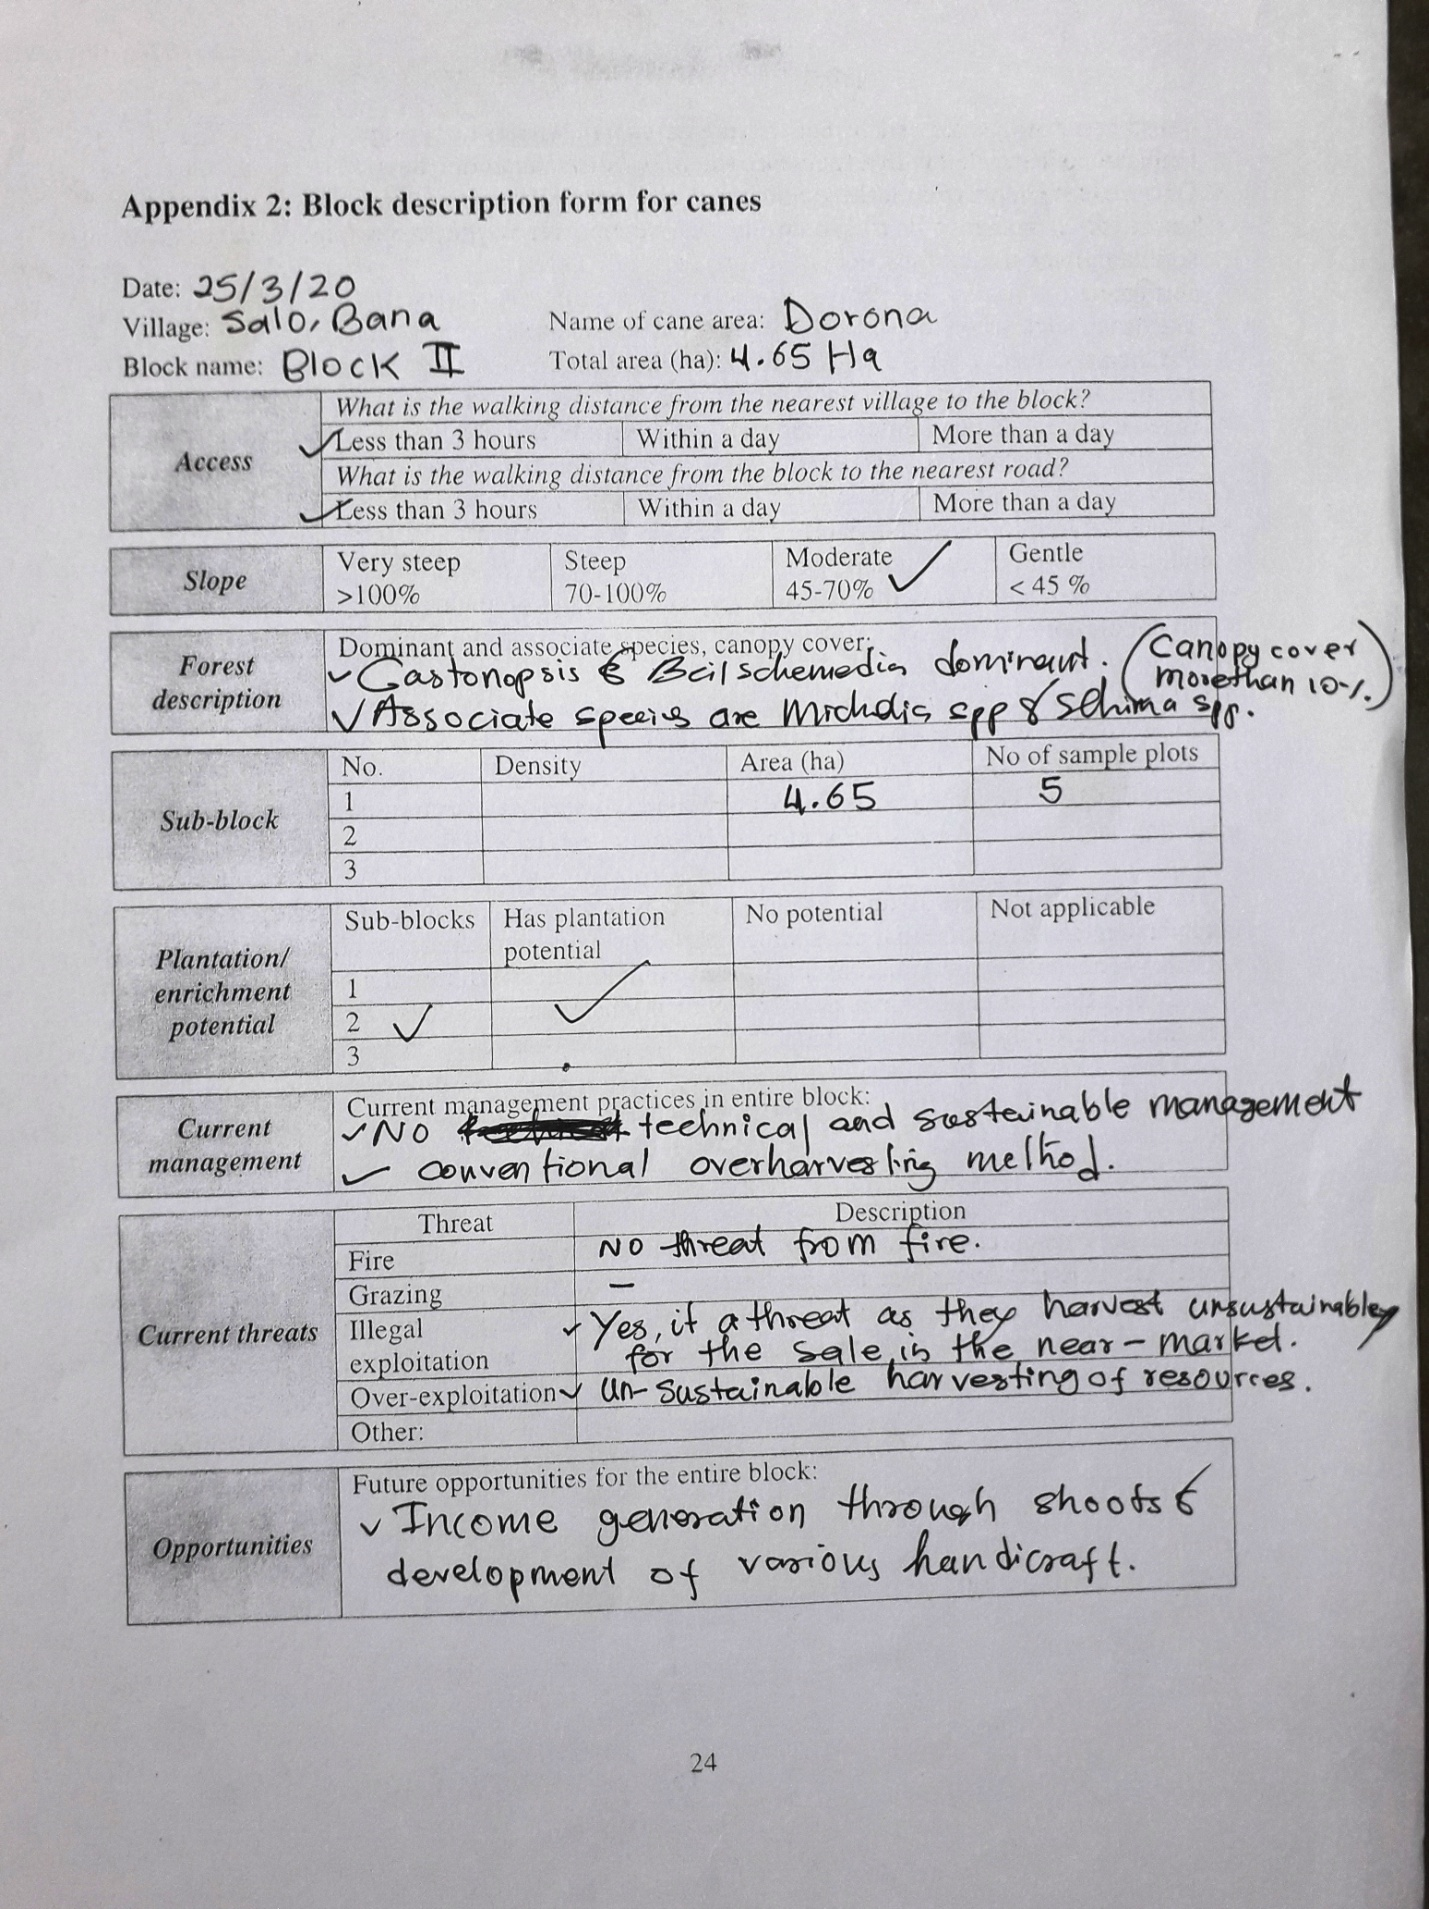 Appendix 2: Block description form for canes
Date: 25/3/20
Village: Salo, Bana Name of cane area: Dorona
Block name: Block II Total area (ha): 4.65 Ha
Access
What is the walking distance from the nearest village to the block?
✓ Less than 3 hours Within a day More than a day
What is the walking distance from the block to the nearest road?
✓ Less than 3 hours Within a day More than a day
Slope
Very steep Steep Moderate ✓ Gentle
>100% 70-100% 45-70% < 45 %
Forest description
Dominant and associate species, canopy cover:
✓ Castonopsis & Beilschemedia dominant. (Canopy cover
more than 10%.)
✓ Associate species are Michelia spp & Schima spp.
Sub-block
No. Density Area (ha) No of sample plots
1 4.65 5
2
3
Plantation/
enrichment
potential
Sub-blocks Has plantation No potential Not applicable
potential
1
2 ✓ ✓
3
Current
management
Current management practices in entire block:
✓ No technical and sustainable management
✓ conventional overharvesting method.
Current threats
Threat Description
Fire No threat from fire.
Grazing –
Illegal ✓ Yes, it a threat as they harvest unsustainabley
exploitation for the sale in the near-market.
Over-exploitation ✓ Un-sustainable harvesting of resources.
Other:
Opportunities
Future opportunities for the entire block:
✓ Income generation through shoots &
development of various handicraft.
24